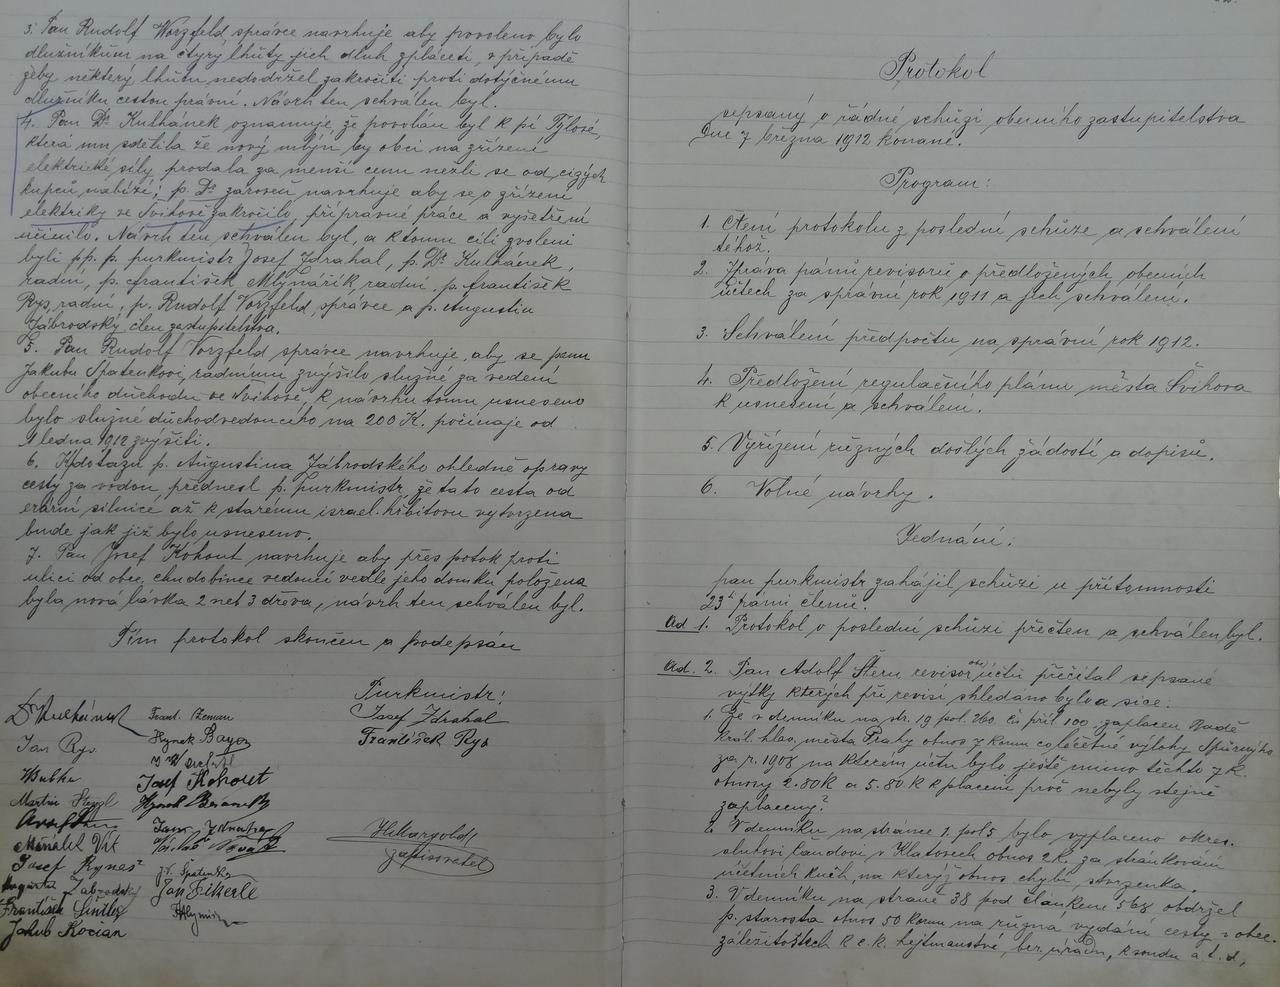 3. Pan Rudolf Vorzfeld správce navrhuje aby povoleno bylo
dlužníkům na čtyry lhůty jich dluh zpláceti, v případě
žeby některý lhůtu nedodržel zakročiti proti dotyčnému
dlužníku cestou právní. Návrh ten schválen byl.
4. Pan Dr. Kulhánek oznamuje že povolán byl k pí Tylové,
která mu sdělila že nový mlýn by obci na zřízení
elektrické síly prodala za menší cenu nežli se od cizých
kupců nabízí; p. Dr. zároveň navrhuje aby se o zřízení
elektriky ve Švihově zakročilo, přípravné práce a vyšetření
učinilo. Návrh ten schválen byl, a k tomu cíli zvoleni
byli pp. p. purkmistr Josef Zdrahal, p. Dr. Kulhánek,
radní, p. František Mlynářík radní, p. František
Rys, radní, p. Rudolf Vorzfeld, správce a p. Augustin
Zábrodský člen zastupitelstva.
5. Pan Rudolf Vorzfeld správce navrhuje, aby se panu
Jakubu Špatenkovi, radnímu zvýšilo služné za vedení
obecního důchodu ve Švihově, k návrhu tomu usneseno
bylo služné důchodvedoucího na 200 K. počínaje od
1 ledna 1912 zvýšiti.
6. K dotazu p. Augustina Zábrodského ohledně opravy
cesty za vodou přednesl p. purkmistr, že tato cesta od
erární silnice až k starému israel. hřbitovu vytvrzena
bude jak již bylo usneseno.
7. Pan Josef Kohout navrhuje aby přes potok proti
ulici od obec. chudobince vedoucí vedle jeho domku položena
byla nová lávka z neb 3 dřeva, návrh ten schválen byl.
Tím protokol skončen a podepsán
Purkmistr:
Josef Zdrahal
František Rys
Dr Kulhánek
Jan Rys
Hubka
Martin
Vít
Josef Ryneš
Zábrodský
František
Jakub Kocian
Frant. Zeman
Hynek Bayer
Josef Kohout
Hynek
Jan
J. Špatenka
Jan Eikerle
H. Margold
zapisovatel
Protokol
sepsaný o řádné schůzi obecního zastupitelstva
Dne 7 března 1912 konané.
Program:
1. Čtení protokolu z poslední schůze a schválení
téhož.
2. Zpráva pánů revisorů o předložených obecních
účtech za správní rok 1911 a jich schválení.
3. Schválení předpočtu na správní rok 1912.
4. Předložení regulačního plánu města Švihova
k usnesení a schválení.
5. Vyřízení různých došlých žádostí a dopisů.
6. Volné návrhy.
Jednání:
pan purkmistr zahájil schůzi u přítomnosti
23ti pánů členů.
Ad 1. Protokol o poslední schůzi přečten a schválen byl.
Ad. 2. Pan Adolf Štern revisor obec. účtů přečítal sepsané
výtky kterých při revisi shledáno bylo a sice:
1. Že v denníku na str. 19 pol. 260. čís příl 100. zaplacen Radě
král. hlav. města Prahy obnos 7 korun co léčebné výlohy
za r. 1908 na kterém účtu bylo ještě mimo těchto 7 K.
obnosy 2.80 K a 5.80 K k placení proč nebyly stejně
zaplaceny?
2. V denníku na stránce 1. pol 5 bylo vyplaceno okres.
sluhovi Čandovi v Klatovech obnos 2 K. za stránkování
účetních knih, na kterýž obnos chybí stvrzenka.
3. V denníku na straně 38 pod článkem 568 obdržel
p. starosta obnos 50 korun na různá vydání cesty v obec.
záležitostech k c. k. hejtmanství, ber. úřadu, k soudu a t. d,